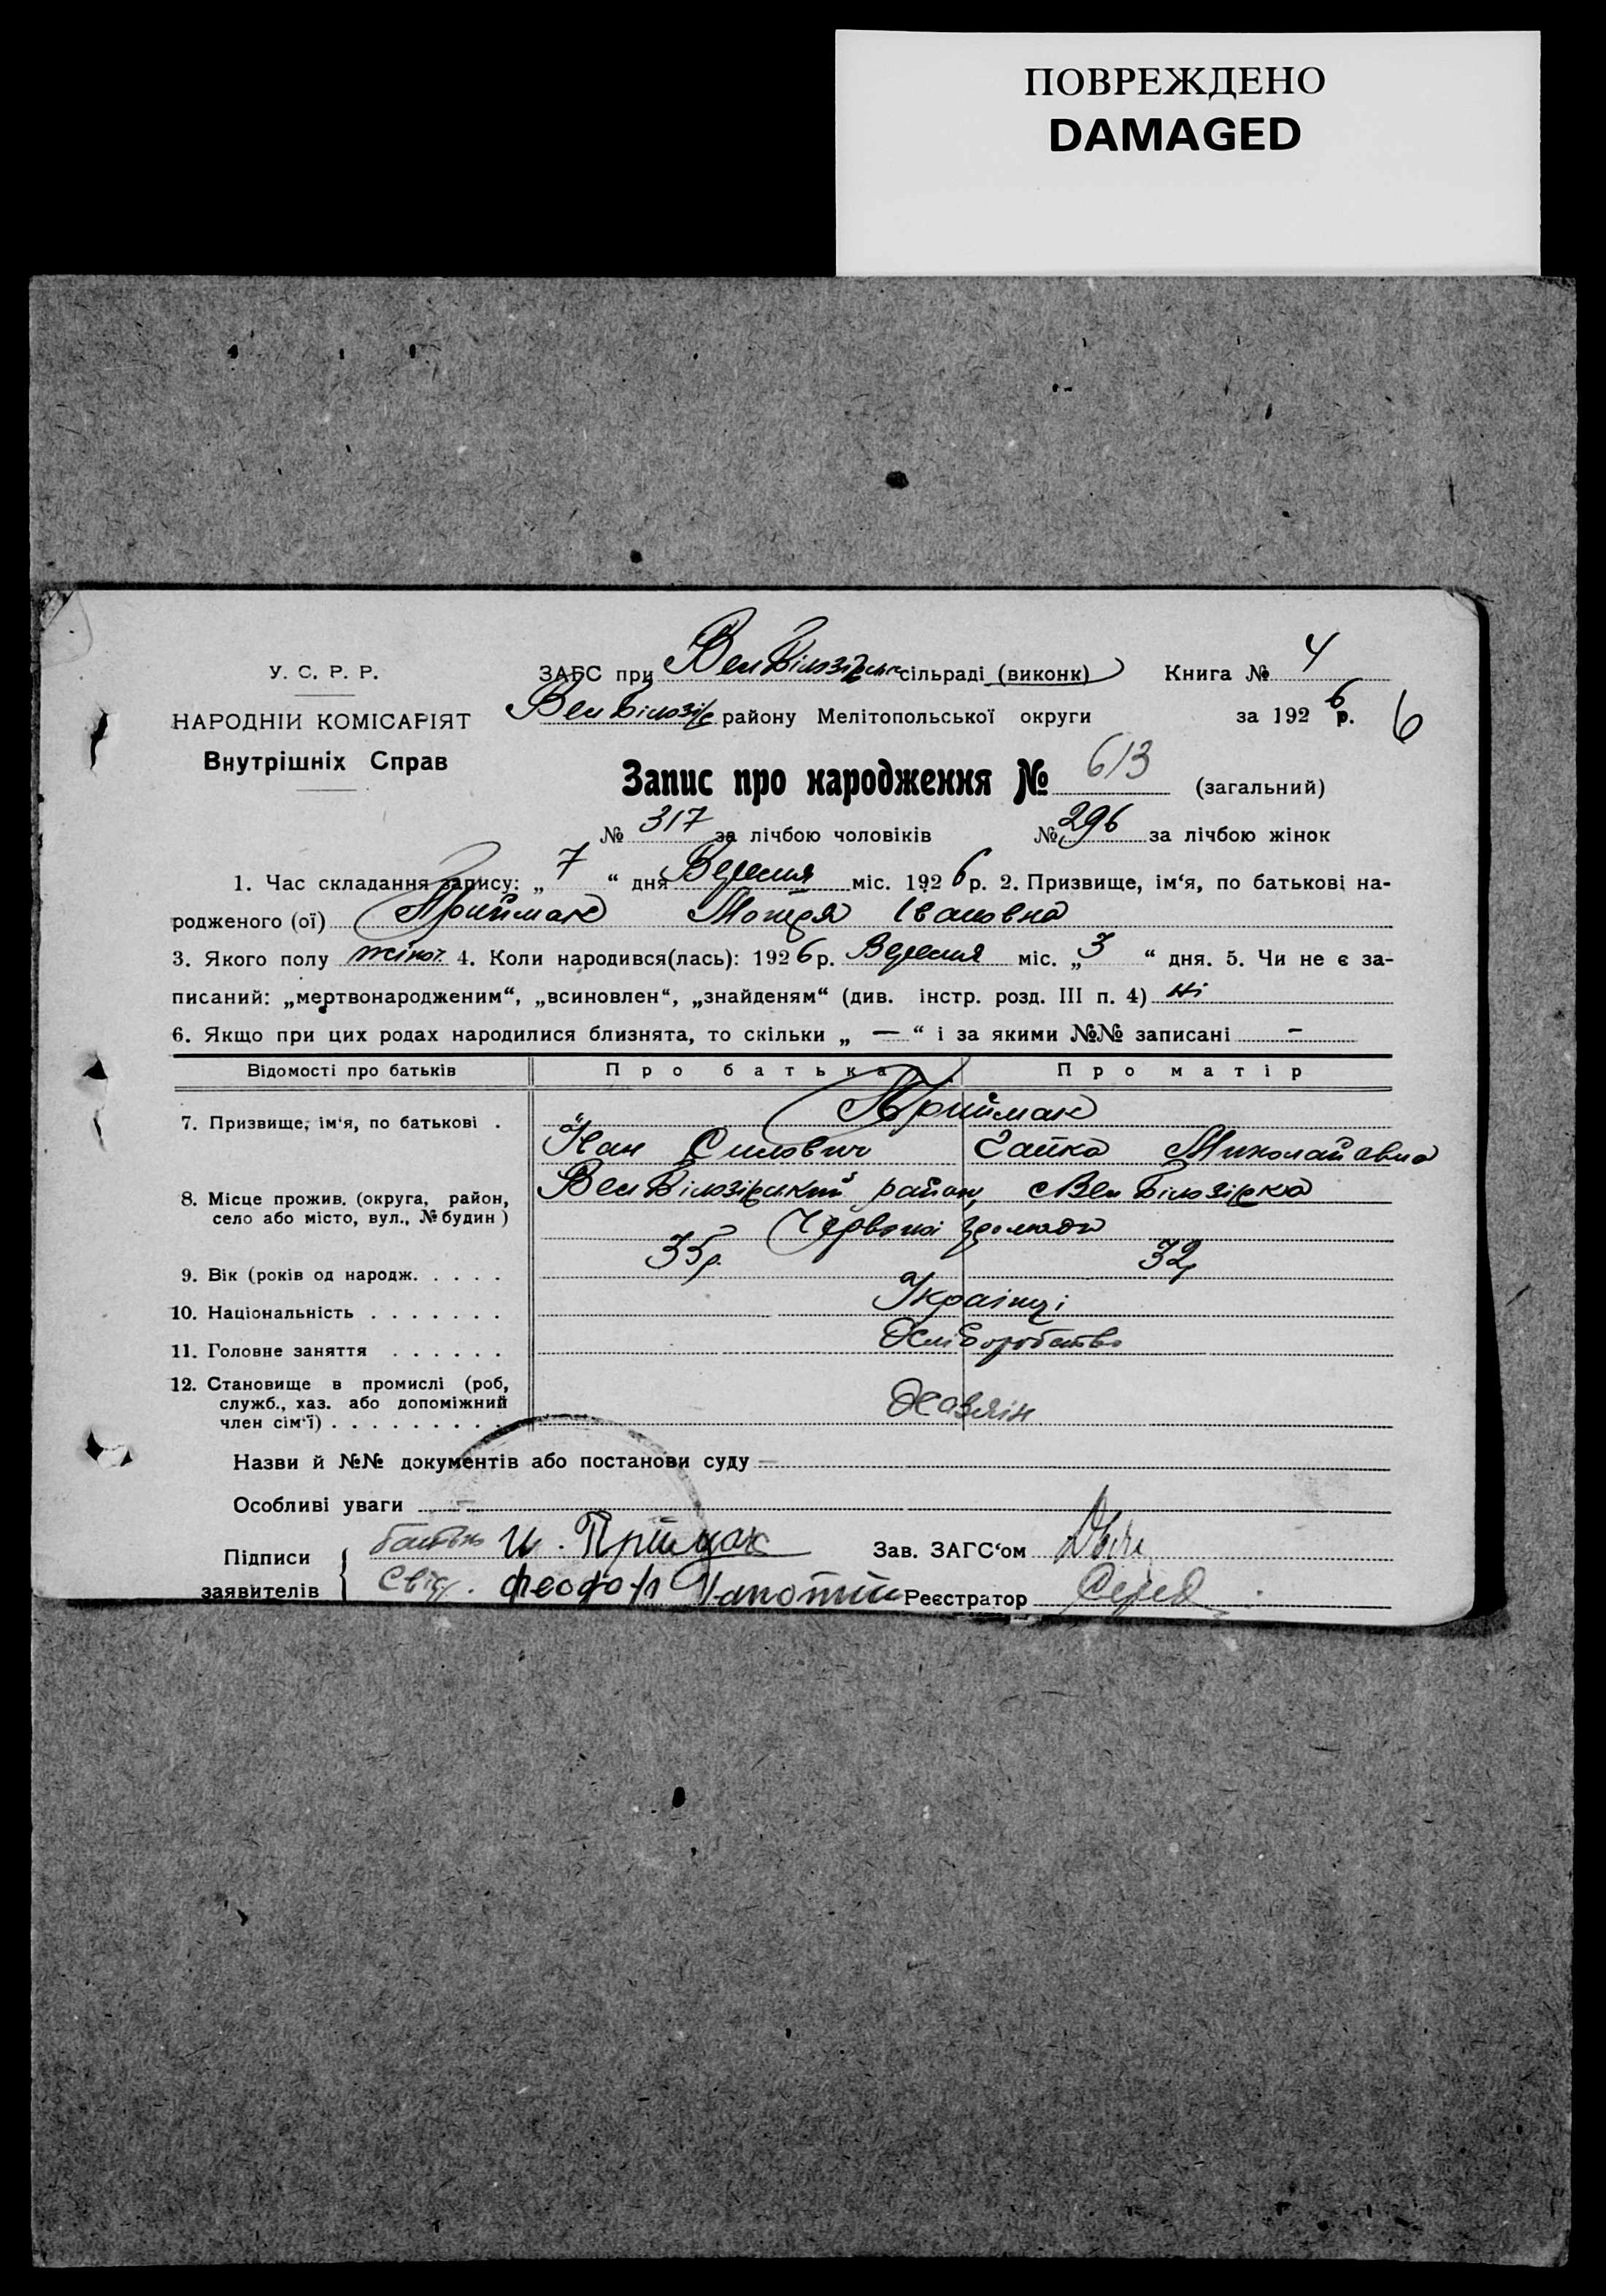 ПОВРЕЖДЕНО
DAMAGED
У. С. Р. Р.
НАРОДНІЙ КОМІСАРІЯТ
Внутрішніх Справ
ЗАГС при ВелБілозірськ сільраді (виконк) Книга № 4
ВелБілозір району Мелітопольської округи за 192 6 р. 6
Запис про народження № 613 (загальний)
№ 317 за лічбою чоловіків № 296 за лічбою жінок
1. Час складання запису: „ 7 “ дня Вересня міс. 192 6 р. 2. Призвище, ім‘я, по батькові на-
родженого (ої) Приймак Мотря Івановна
3. Якого полу жіноч. 4. Коли народився(лась): 192 6 р. Вересня міс. „ 3 “ дня. 5. Чи не є за-
писаний: „мертвонародженим“, „всиновлен“, „знайденям“ (див. інстр. розд. III п. 4) ні
6. Якщо при цих родах народилися близнята, то скільки „ — “ і за якими №№ записані -
Відомості про батьків Про батька Про матір
7. Призвище, ім‘я, по батькові . Приймак
Іван Силович Гапка Миколайавна
8. Місце прожив. (округа, район, село або місто, вул., № будин) ВелБілозірський район, с Вел Білозірка
Червоної громади
9. Вік (років од народж. . . . . 35 р. 32 р
10. Національність . . . . . . . Українці
11. Головне заняття . . . . . . Хліборобство
12. Становище в промислі (роб, служб., хаз. або допоміжний член сім‘ї) . . . . . . . . . Хазяін
Назви й №№ документів або постанови суду —
Особливі уваги —
Підписи заявителів { батько И. Приймак Зав. ЗАГС‘ом
Свід. Феодор Реєстратор